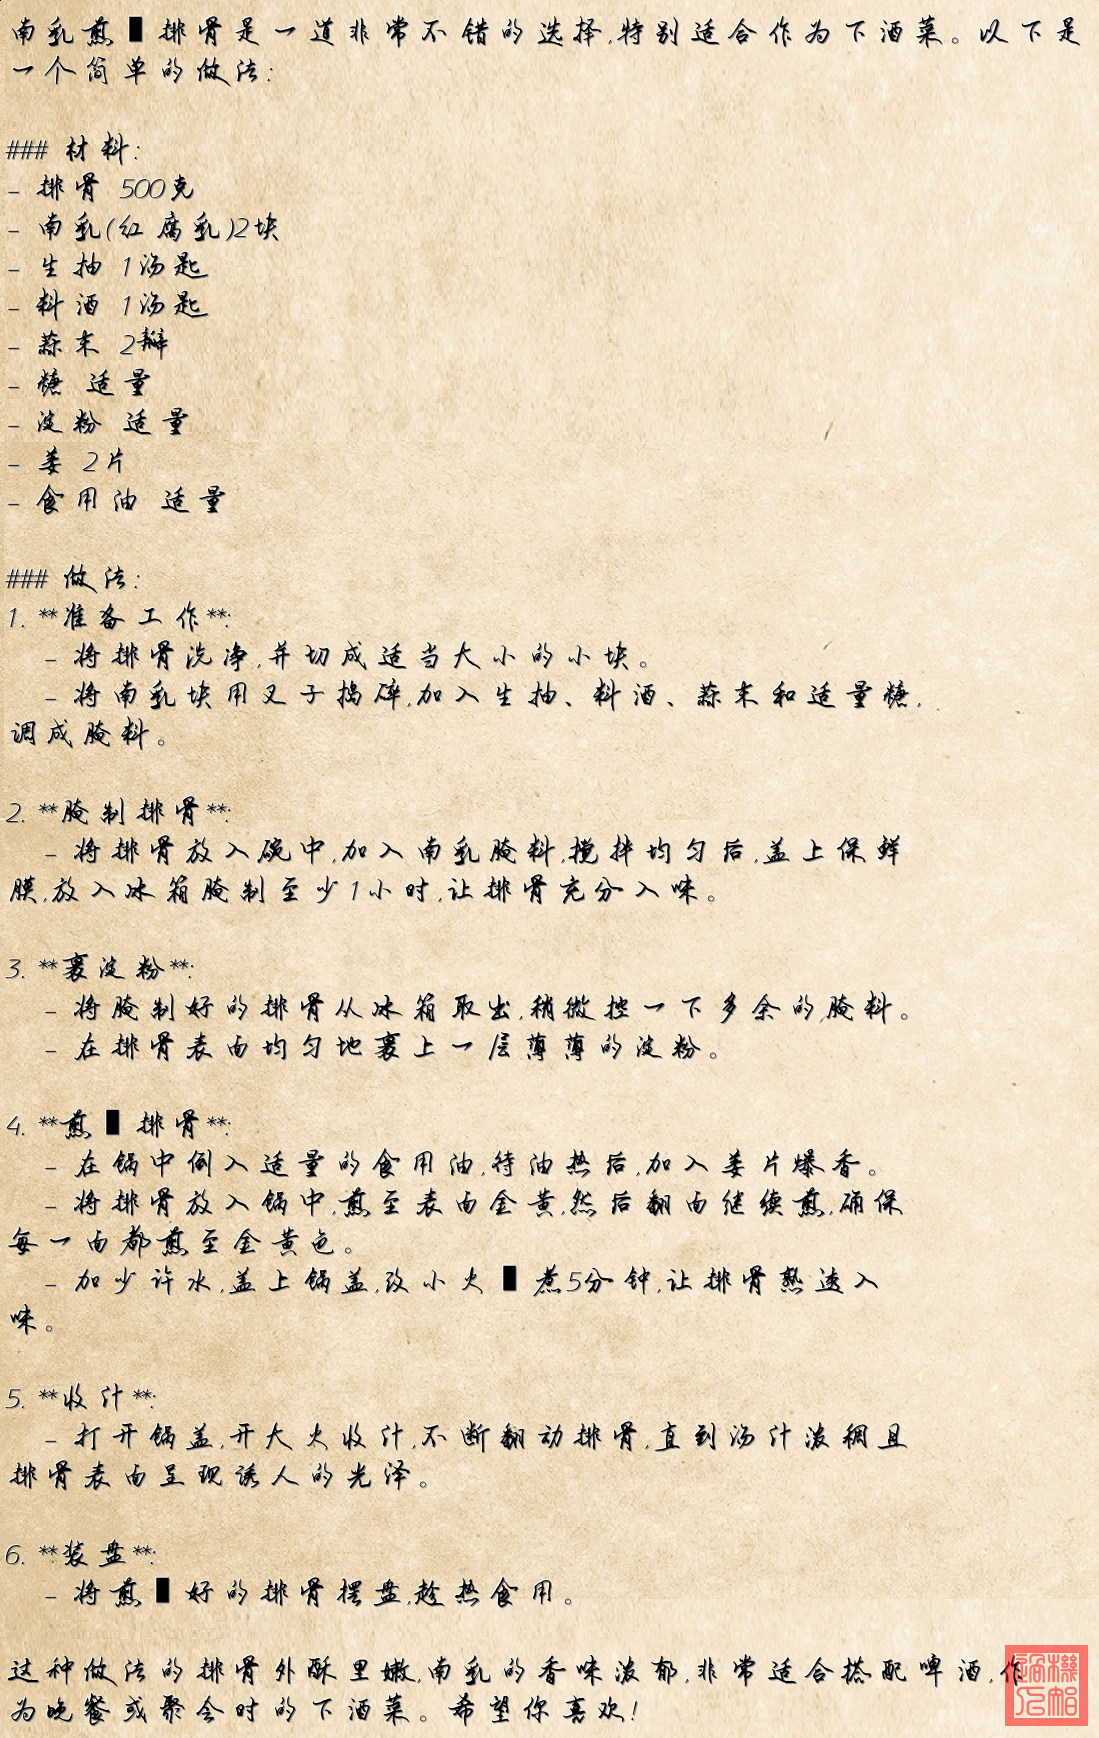 南乳煎█排骨是一道非常不错的选择,特别适合作为下酒菜。以下是
一个简单的做法:
### 材料:
- 排骨 500克
- 南乳(红腐乳)2块
- 生抽 1汤匙
- 料酒 1汤匙
- 蒜末 2瓣
- 糖 适量
- 淀粉 适量
- 姜 2片
- 食用油 适量
### 做法:
1. **准备工作**:
- 将排骨洗净,并切成适当大小的小块。
- 将南乳块用叉子捣碎,加入生抽、料酒、蒜末和适量糖,
调成腌料。
2. **腌制排骨**:
- 将排骨放入碗中,加入南乳腌料,搅拌均匀后,盖上保鲜
膜,放入冰箱腌制至少1小时,让排骨充分入味。
3. **裹淀粉**:
- 将腌制好的排骨从冰箱取出,稍微控一下多余的腌料。
- 在排骨表面均匀地裹上一层薄薄的淀粉。
4. **煎█排骨**:
- 在锅中倒入适量的食用油,待油热后,加入姜片爆香。
- 将排骨放入锅中,煎至表面金黄,然后翻面继续煎,确保
每一面都煎至金黄色。
- 加少许水,盖上锅盖,改小火█煮5分钟,让排骨熟透入
味。
5. **收汁**:
- 打开锅盖,开大火收汁,不断翻动排骨,直到汤汁浓稠且
排骨表面呈现诱人的光泽。
6. **装盘**:
- 将煎█好的排骨摆盘,趁热食用。
这种做法的排骨外酥里嫩,南乳的香味浓郁,非常适合搭配啤酒,作
为晚餐或聚会时的下酒菜。希望你喜欢!